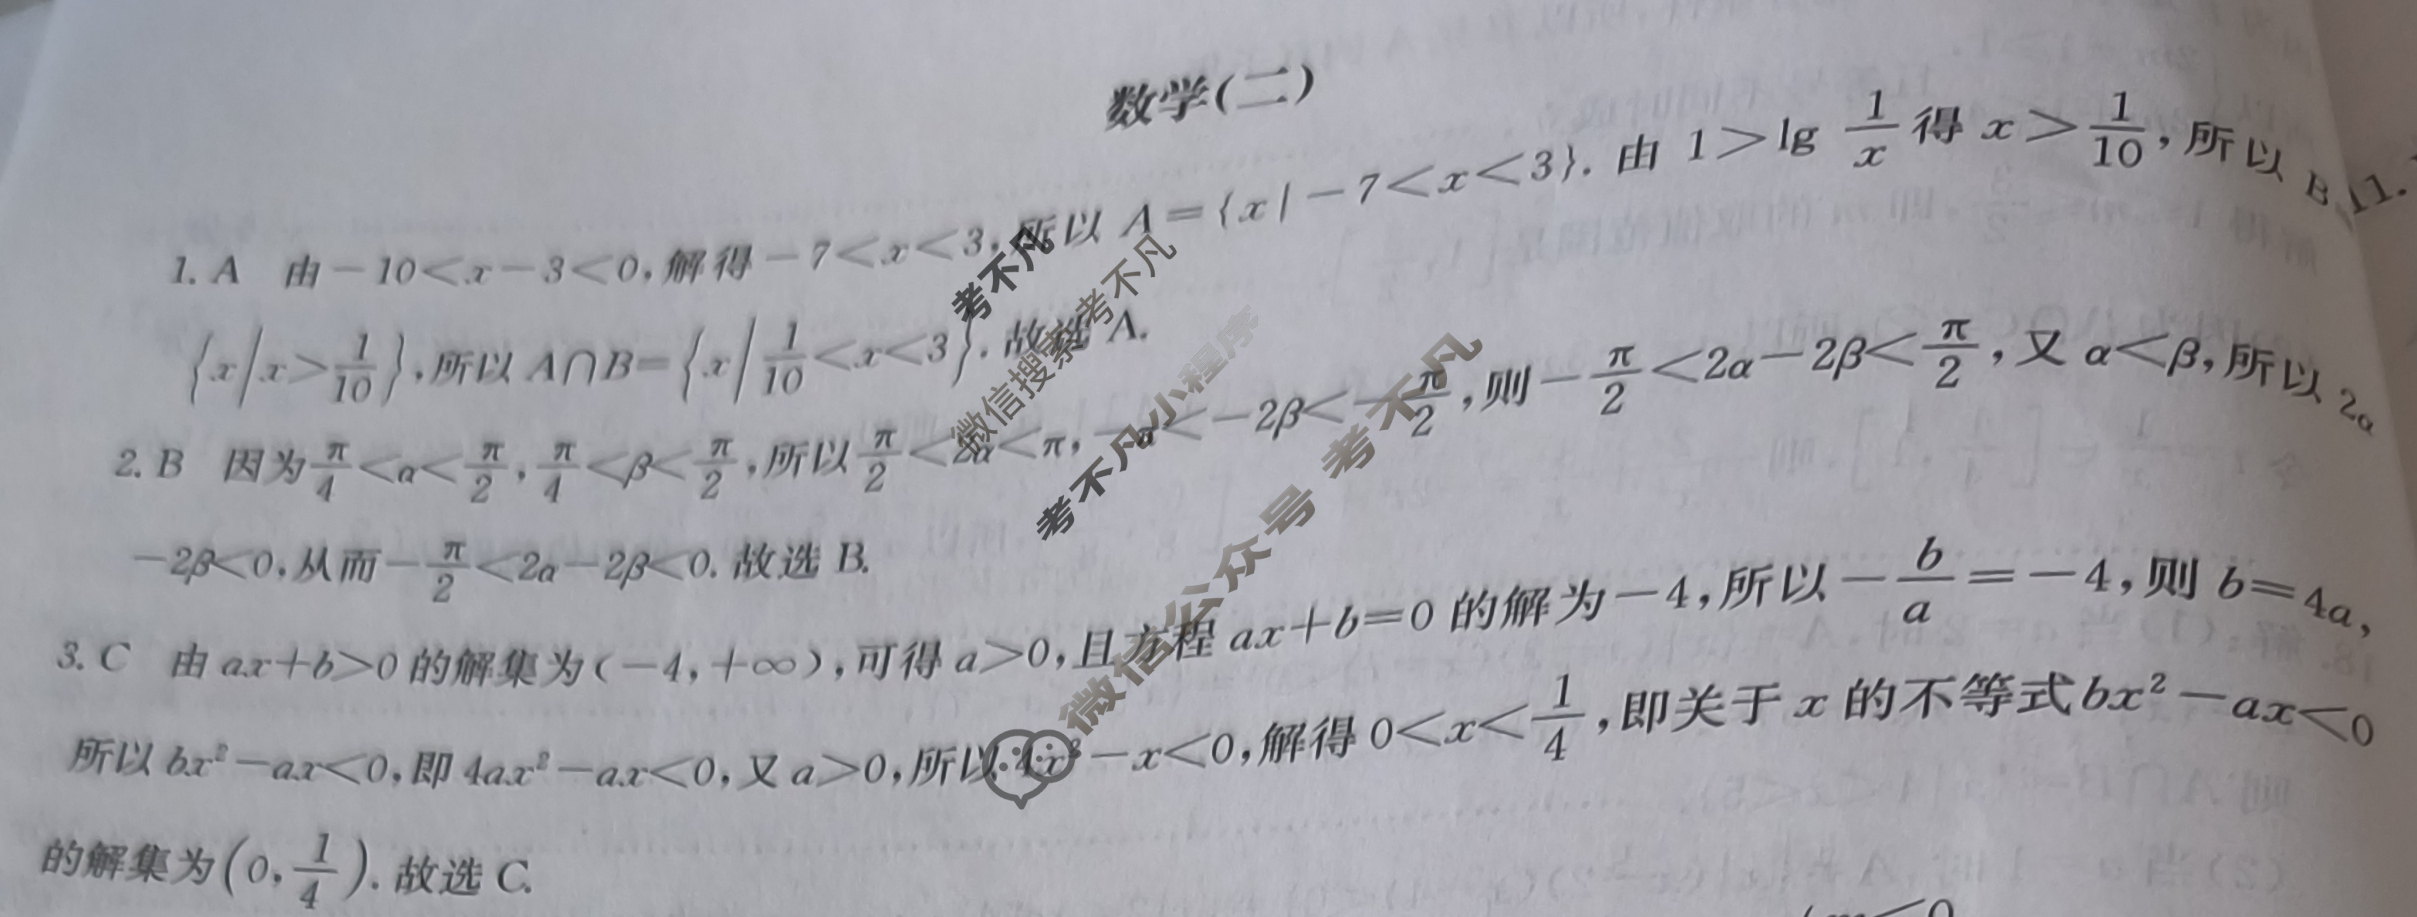 数学(二)
1. A 由 －10＜x－3＜0,解得－7＜x＜3,所以 A＝{x|－7＜x＜3}. 由 1＞lg 1/x 得 x＞1/10,所以 B
{x|x＞1/10},所以 A∩B＝{x|1/10＜x＜3}. 故选 A.
2. B 因为 π/4＜α＜π/2, π/4＜β＜π/2,所以 π/2＜2α＜π, －π＜－2β＜－π/2,则－π/2＜2α－2β＜π/2,又 α＜β,所以 2α
－2β＜0,从而－π/2＜2α－2β＜0. 故选 B.
3. C 由 ax＋b＞0 的解集为(－4,＋∞),可得 a＞0,且方程 ax＋b＝0 的解为－4,所以－b/a＝－4,则 b＝4a,
所以 bx²－ax＜0,即 4ax²－ax＜0,又 a＞0,所以 4x²－x＜0,解得 0＜x＜1/4,即关于 x 的不等式 bx²－ax＜0
的解集为(0, 1/4). 故选 C.
11.
考不凡
微信搜索考不凡
考不凡小程序
微信公众号 考不凡